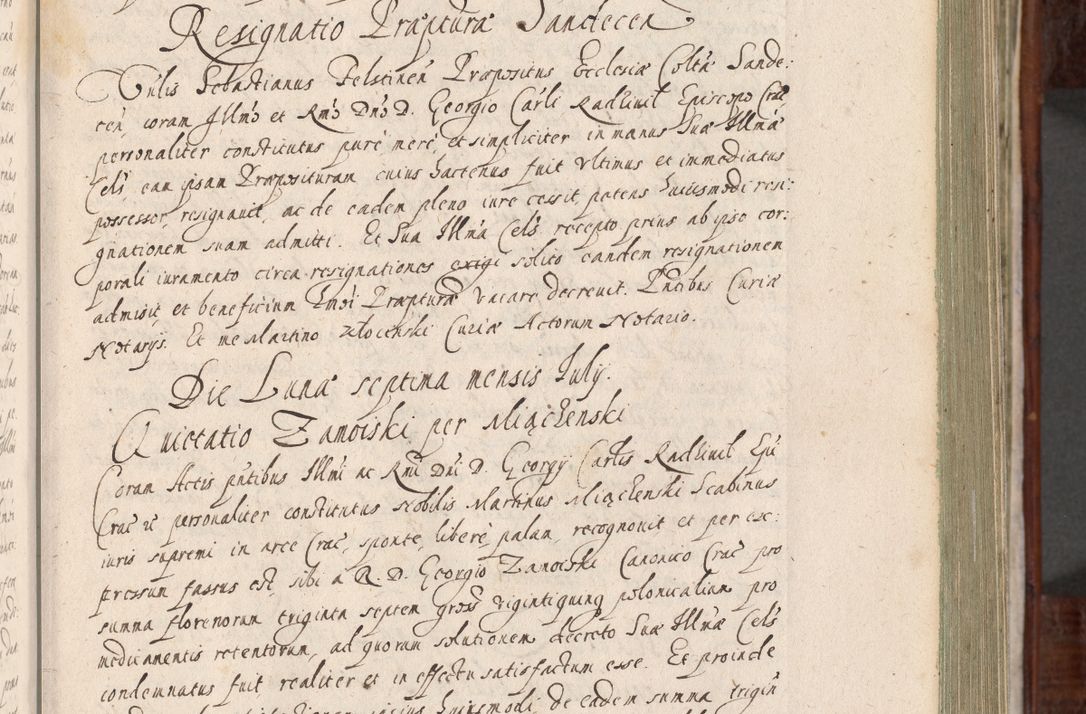 Resignatio Præptura Sandecen
Vnlis Sebastianus Felstinen Præpositus Ecclesiæ Coltæ Sande:
cen, coram Illmo et Rmo Dno D. Georgio Carli Radziuil Episcopo Crac
personaliter constitutus purè merè, et simpliciter in manus Suæ Illmæ
Cels, eam ipsam Præposituram cuius hactenus fuit vltimus et immediatus
possessor, resignauit, ac de eadem pleno iure cessit, petens huiusmodi resi:
gnationem suam admitti. Et Sua Illma Cels recepto prius ab ipso cor:
porali iuramento circa resignationes exigi solito eandem resignationem
admisit, et beneficium hmoi Præpturæ vacare decreuit. Pntibus Curiæ
Notarys. Et me Martino Złocenski Curiæ Actorum Notario.
Die Lunæ septima mensis July.
Quietatio Zamoiski per Miączenski
Coram Actis pntibus Illmi ac Rmi Dni D. Georgy Carlis Radziuil Epi
Crac &c personaliter constitutus Nobilis Martinus Miączenski Scabinus
iuris supremi in arce Crac, sponte, liberè, palam, recognouit et per exe:
pressum fassus est, sibi a R. D. Georgio Zamoiski Canonico Crac pro
summa florenorum triginta septem gross vigintiquinq polonicaliam pro
medicamentis retentorum, ad quorum solutionem decreto Suæ Illmæ Cels
condemnatus fuit realiter et in effectu satisfactum esse. Et proinde
huiusmodi de eadem summa trigin